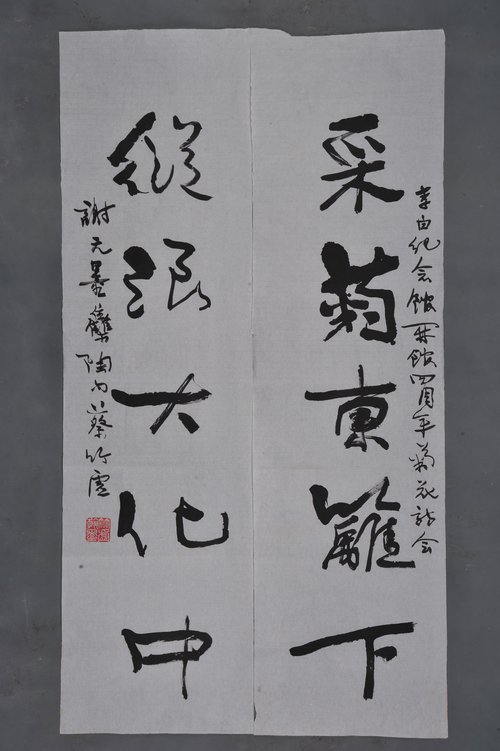 李白纪念館開館四周年菊花詩会
采菊東籬下
縱浪大化中
謝无量集陶句蔡竹虚